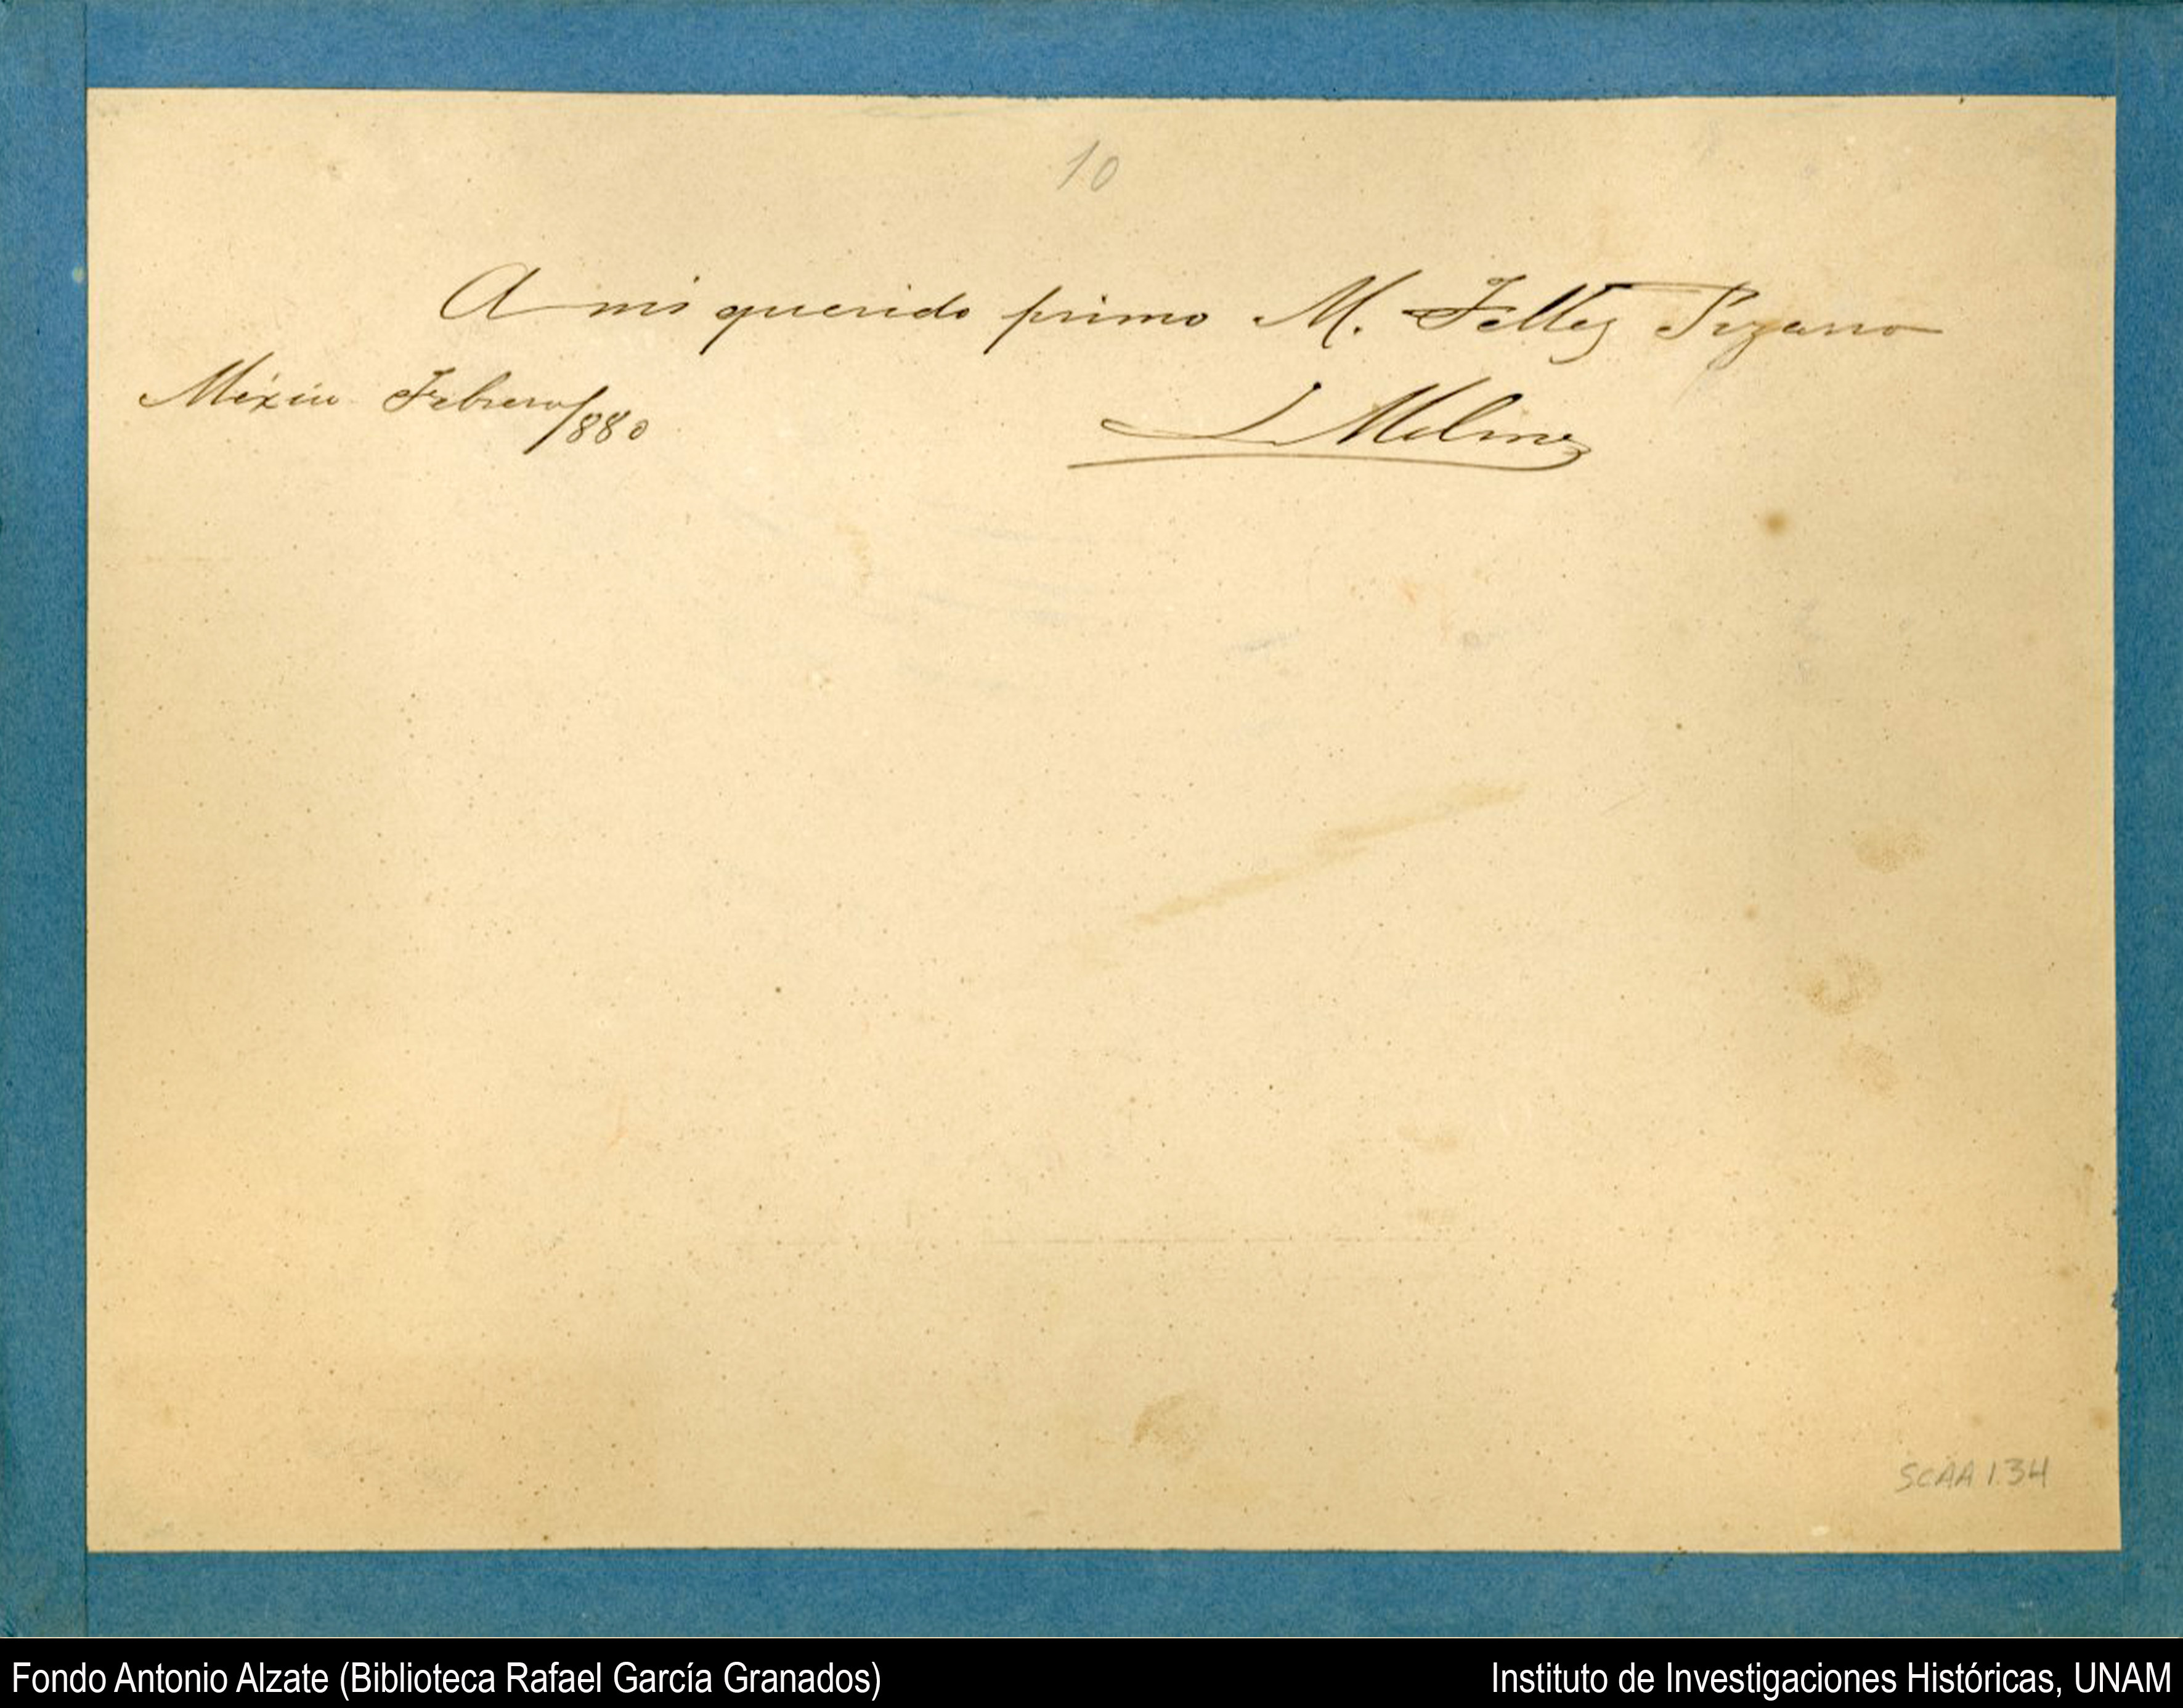 10
A mi querido primo M. Tellez Pizarro
México Febrero/880
SCAA 1.34
Fondo Antonio Alzate (Biblioteca Rafael García Granados)
Instituto de Investigaciones Históricas, UNAM